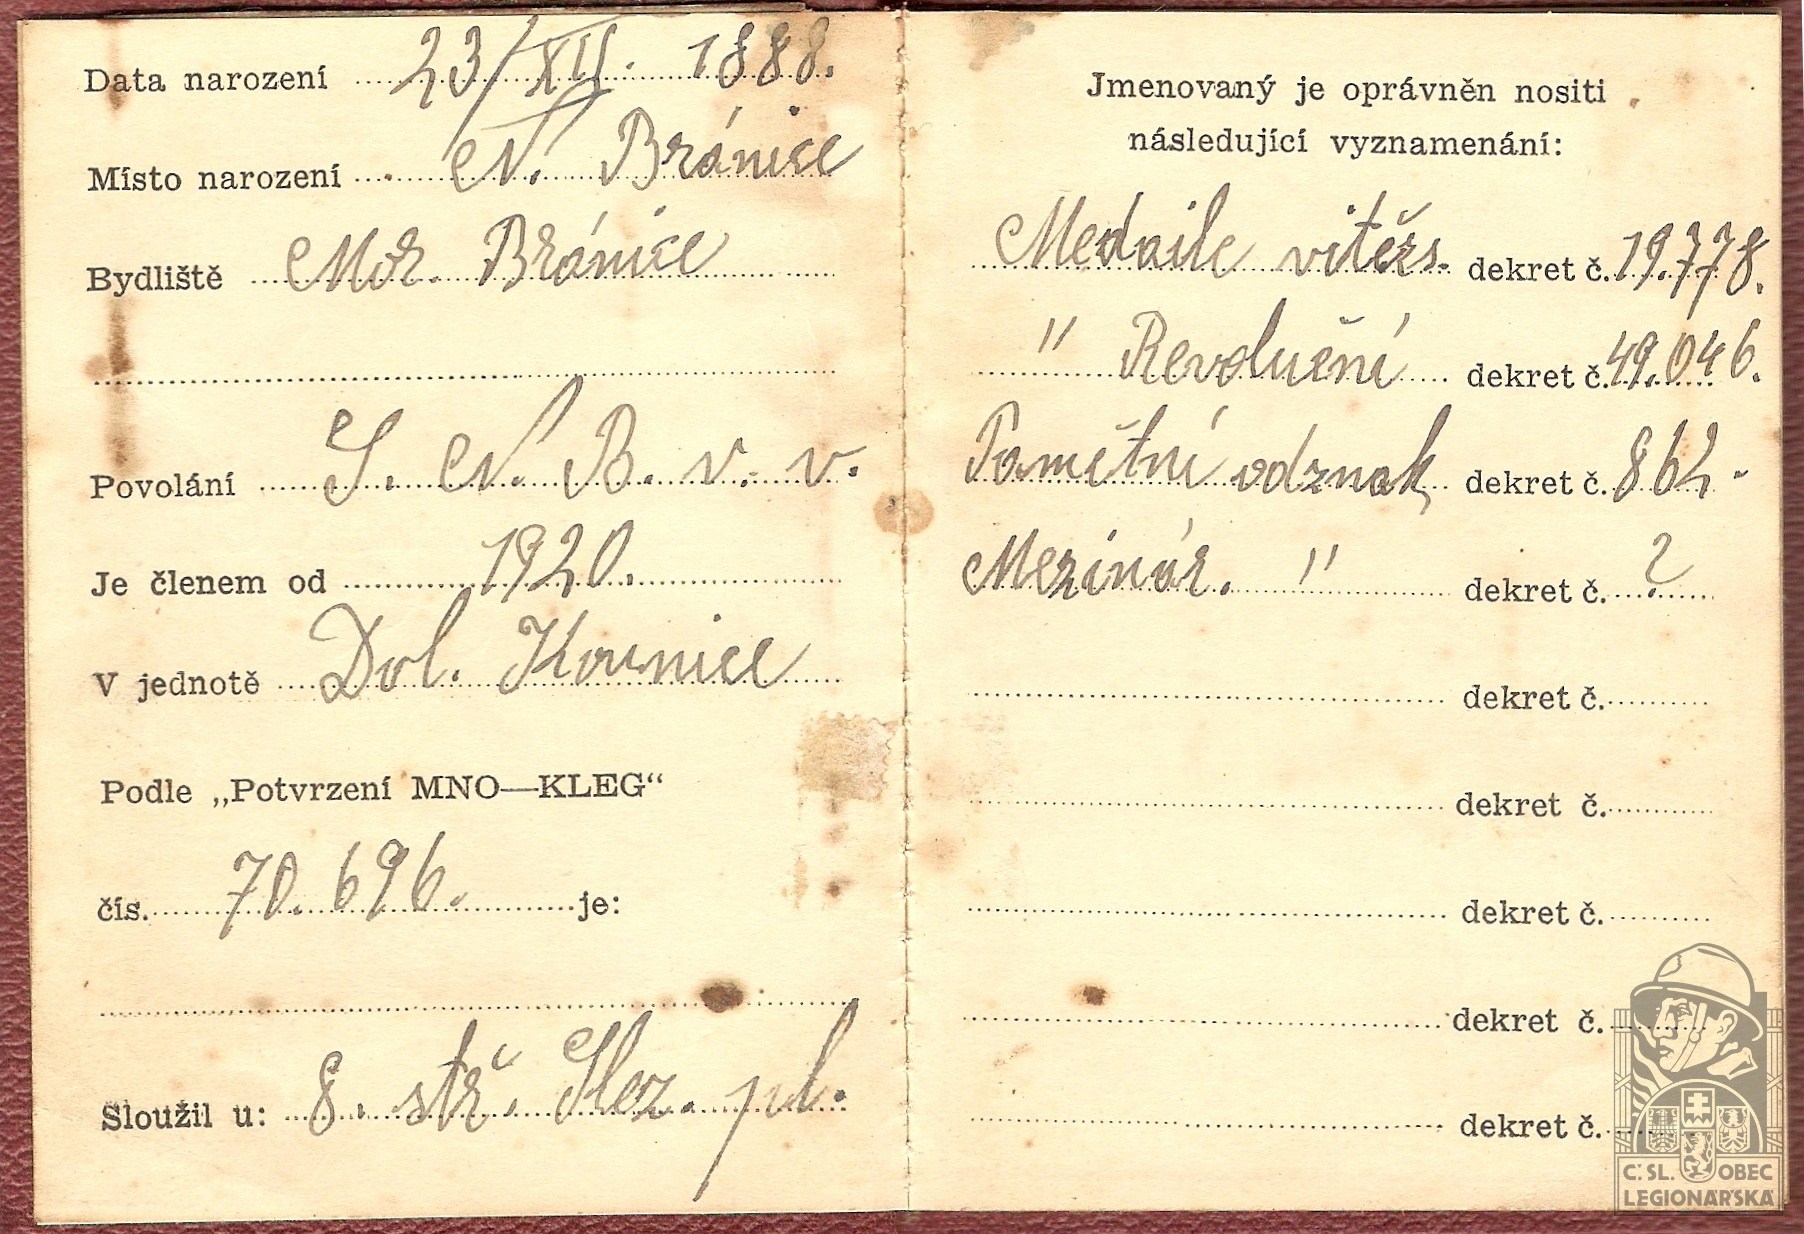 Data narození 23/XII. 1888.
Místo narození N. Bránice
Bydliště Mor. Bránice
Povolání S. N. B. v. v.
Je členem od 1920.
V jednotě Dol. Kounice
Podle „Potvrzení MNO—KLEG“
čís. 70.696. je:
Sloužil u: 8. stř. Slez. pl.
Jmenovaný je oprávněn nositi
následující vyznamenání:
Medaile vitězs. dekret č. 19.778.
" Revoluční dekret č. 49.046.
Pamětní odznak dekret č. 862.
Mezinár. " dekret č. ?
dekret č.
dekret č.
dekret č.
dekret č.
dekret č.
Č. SL. OBEC
LEGIONÁŘSKÁ